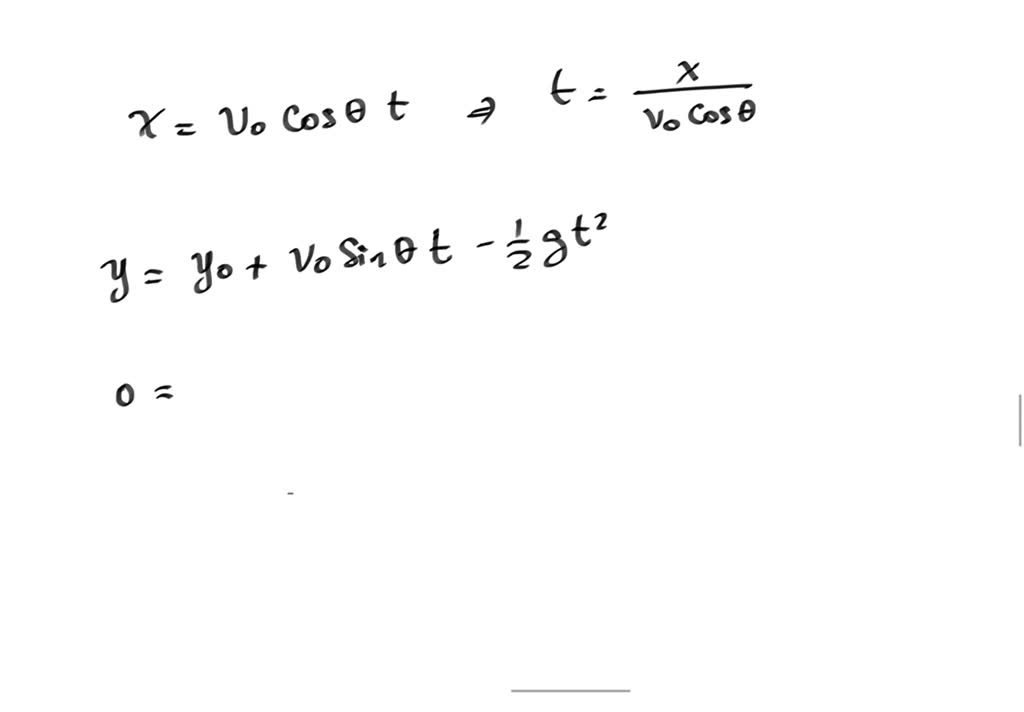 x = v₀ cosθ t ⇒ t = x / (v₀ cosθ)
y = y₀ + v₀ sinθ t - ½ g t²
0 =